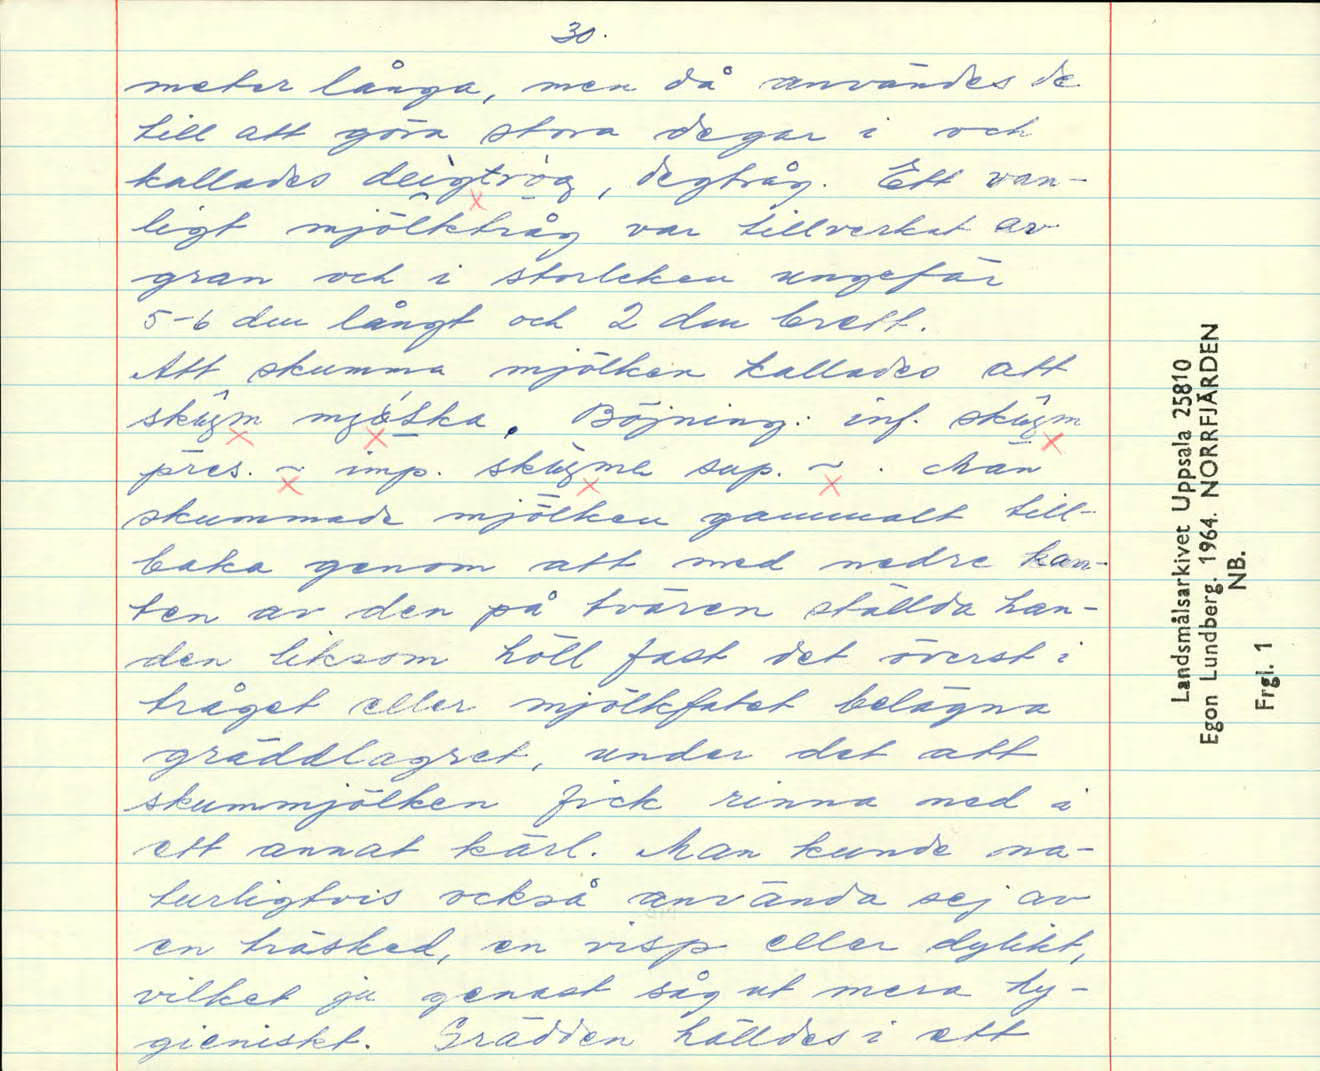 30.
meter långa, men då användes de
till att göra stora degar i och
kallades deigtrög, degtråg. Ett van-
ligt mjölktråg var tillverkat av
gran och i storleken ungefär
5-6 dm långt och 2 dm brett.
Att skumma mjölken kallades att
Böjning: inf.
pres. ~ imp. sup. ~ . Man
skummade mjölken gammalt till-
baka genom att med nedre kan-
ten av den på tvären ställda han-
den liksom höll fast det överst i
tråget eller mjölkfatet belägna
gräddlagret, under det att
skummjölken fick rinna ned i
ett annat kärl. Man kunde na-
turligtvis också använda sej av
en träsked, en visp eller dylikt,
vilket ju genast såg ut mera hy-
gieniskt. Grädden hälldes i ett
Landsmålsarkivet Uppsala 25810
Egon Lundberg. 1964. NORRFJÄRDEN
NB.
Frgl. 1